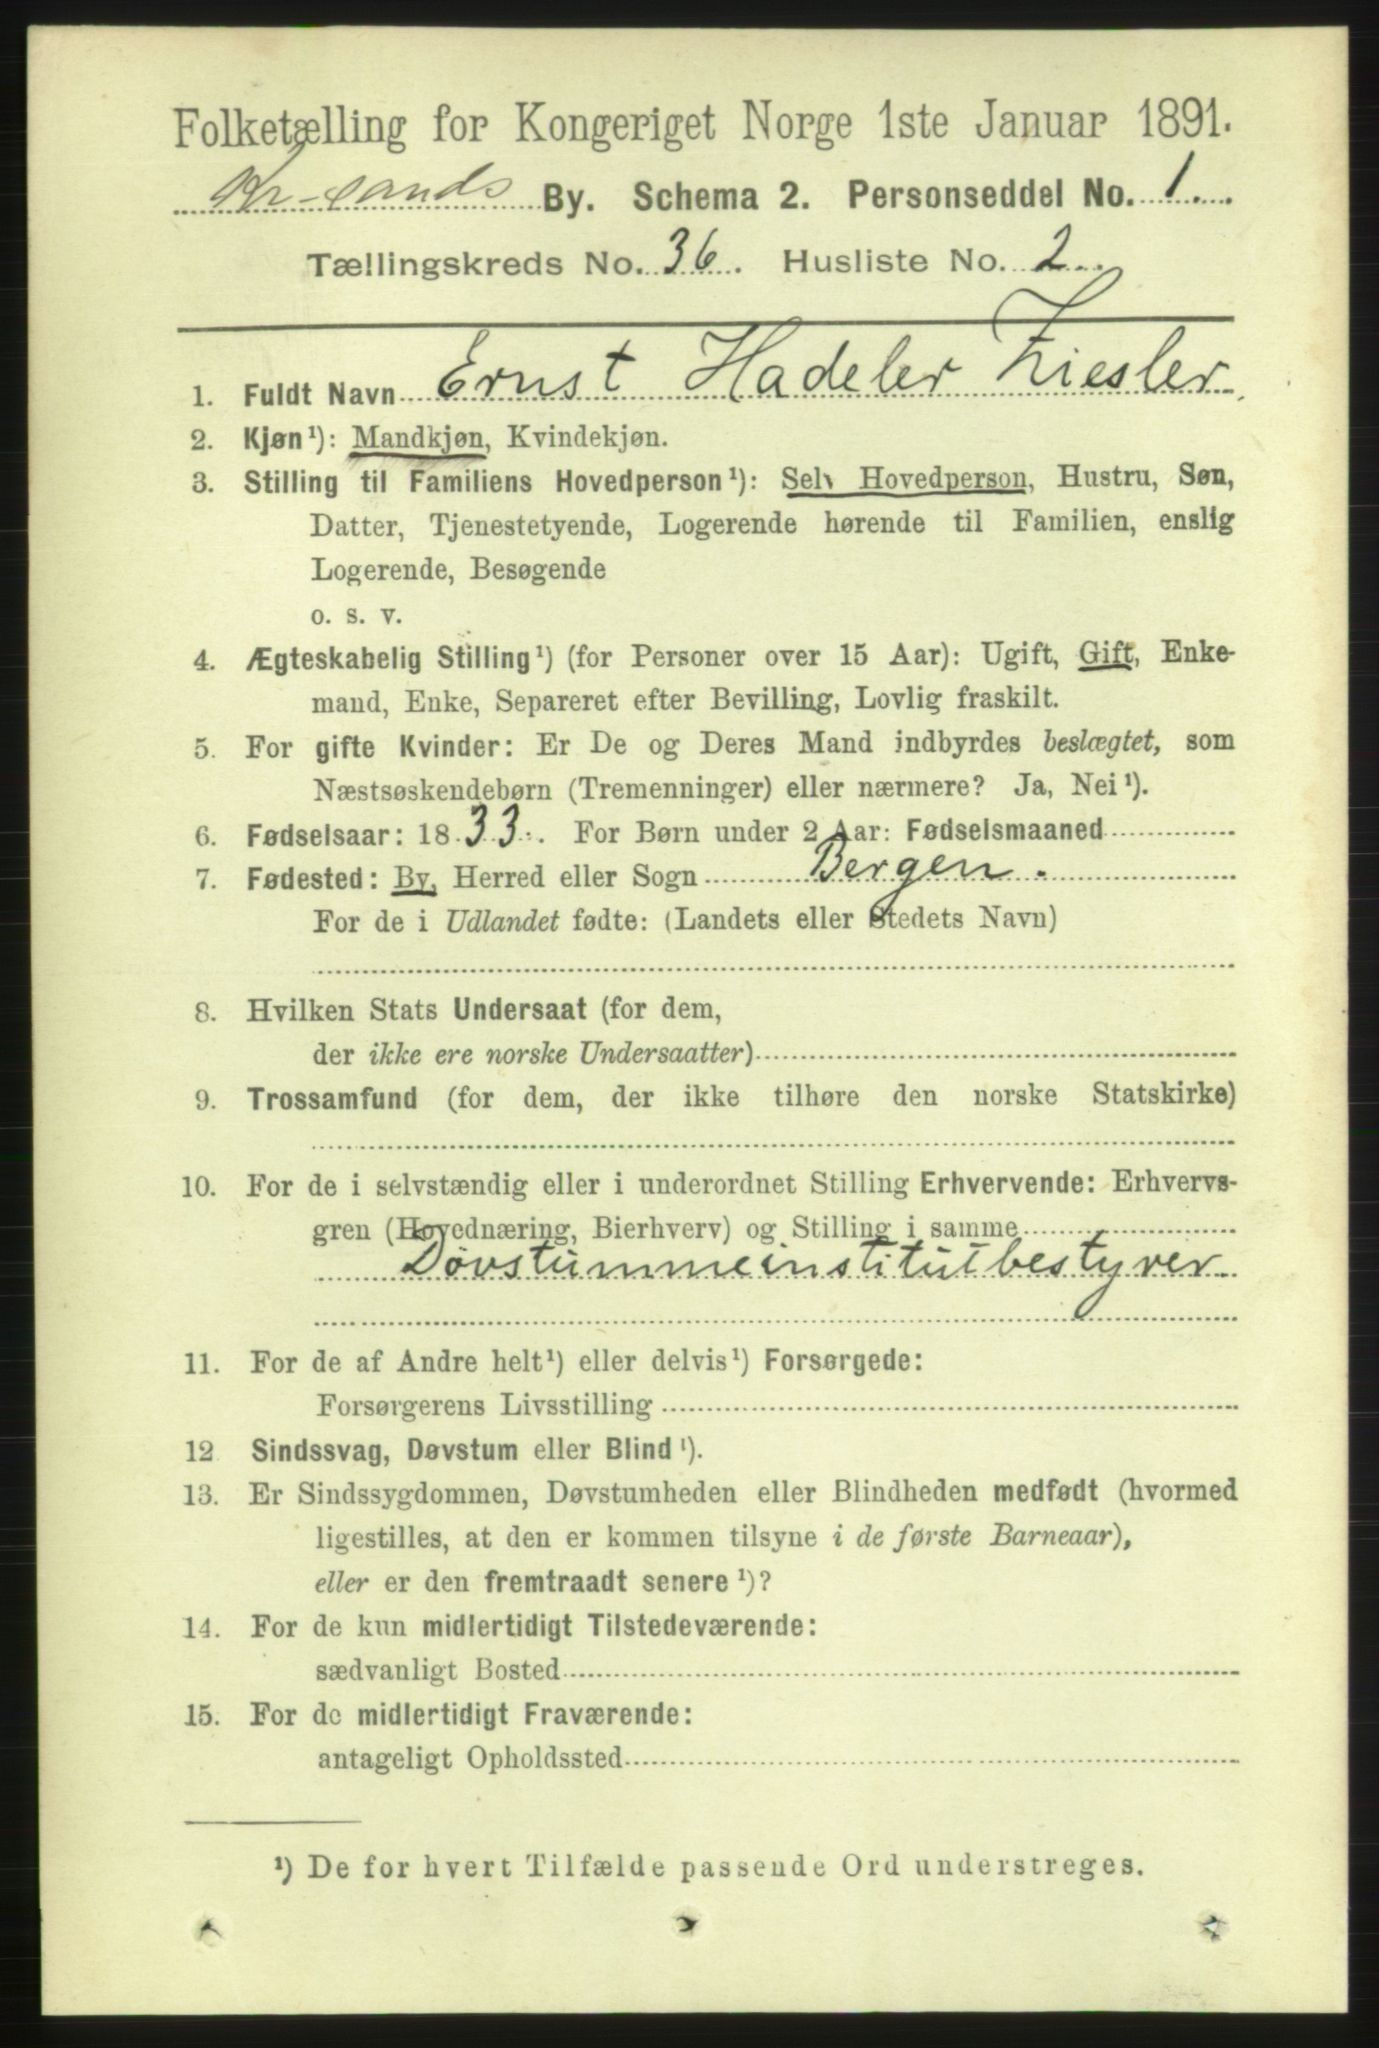 Folketælling for Kongeriget Norge 1ste Januar 1891.
Kr-sands By. Schema 2. Personseddel No. 1.
Tællingskreds No. 36. Husliste No. 2.
1. Fuldt Navn Ernst Hadeler Ziesler
2. Kjøn¹): Mandkjøn, Kvindekjøn.
3. Stilling til Familiens Hovedperson¹): Selv Hovedperson, Hustru, Søn,
Datter, Tjenestetyende, Logerende hørende til Familien, enslig
Logerende, Besøgende
o. s. v.
4. Ægteskabelig Stilling¹) (for Personer over 15 Aar): Ugift, Gift, Enke-
mand, Enke, Separeret efter Bevilling, Lovlig fraskilt.
5. For gifte Kvinder: Er De og Deres Mand indbyrdes beslægtet, som
Næstsøskendebørn (Tremenninger) eller nærmere? Ja, Nei¹).
6. Fødselsaar: 1833. For Børn under 2 Aar: Fødselsmaaned
7. Fødested: By, Herred eller Sogn Bergen.
For de i Udlandet fødte: (Landets eller Stedets Navn)
8. Hvilken Stats Undersaat (for dem,
der ikke ere norske Undersaatter)
9. Trossamfund (for dem, der ikke tilhøre den norske Statskirke)
10. For de i selvstændig eller i underordnet Stilling Erhvervende: Erhvervs-
gren (Hovednæring, Bierhverv) og Stilling i samme
Døvstummeinstitutbestyrer
11. For de af Andre helt¹) eller delvis¹) Forsørgede:
Forsørgerens Livsstilling
12 Sindssvag, Døvstum eller Blind¹).
13. Er Sindssygdommen, Døvstumheden eller Blindheden medfødt (hvormed
ligestilles, at den er kommen tilsyne i de første Barneaar),
eller er den fremtraadt senere¹)?
14. For de kun midlertidigt Tilstedeværende:
sædvanligt Bosted
15. For de midlertidigt Fraværende:
antageligt Opholdssted
¹) De for hvert Tilfælde passende Ord understreges.